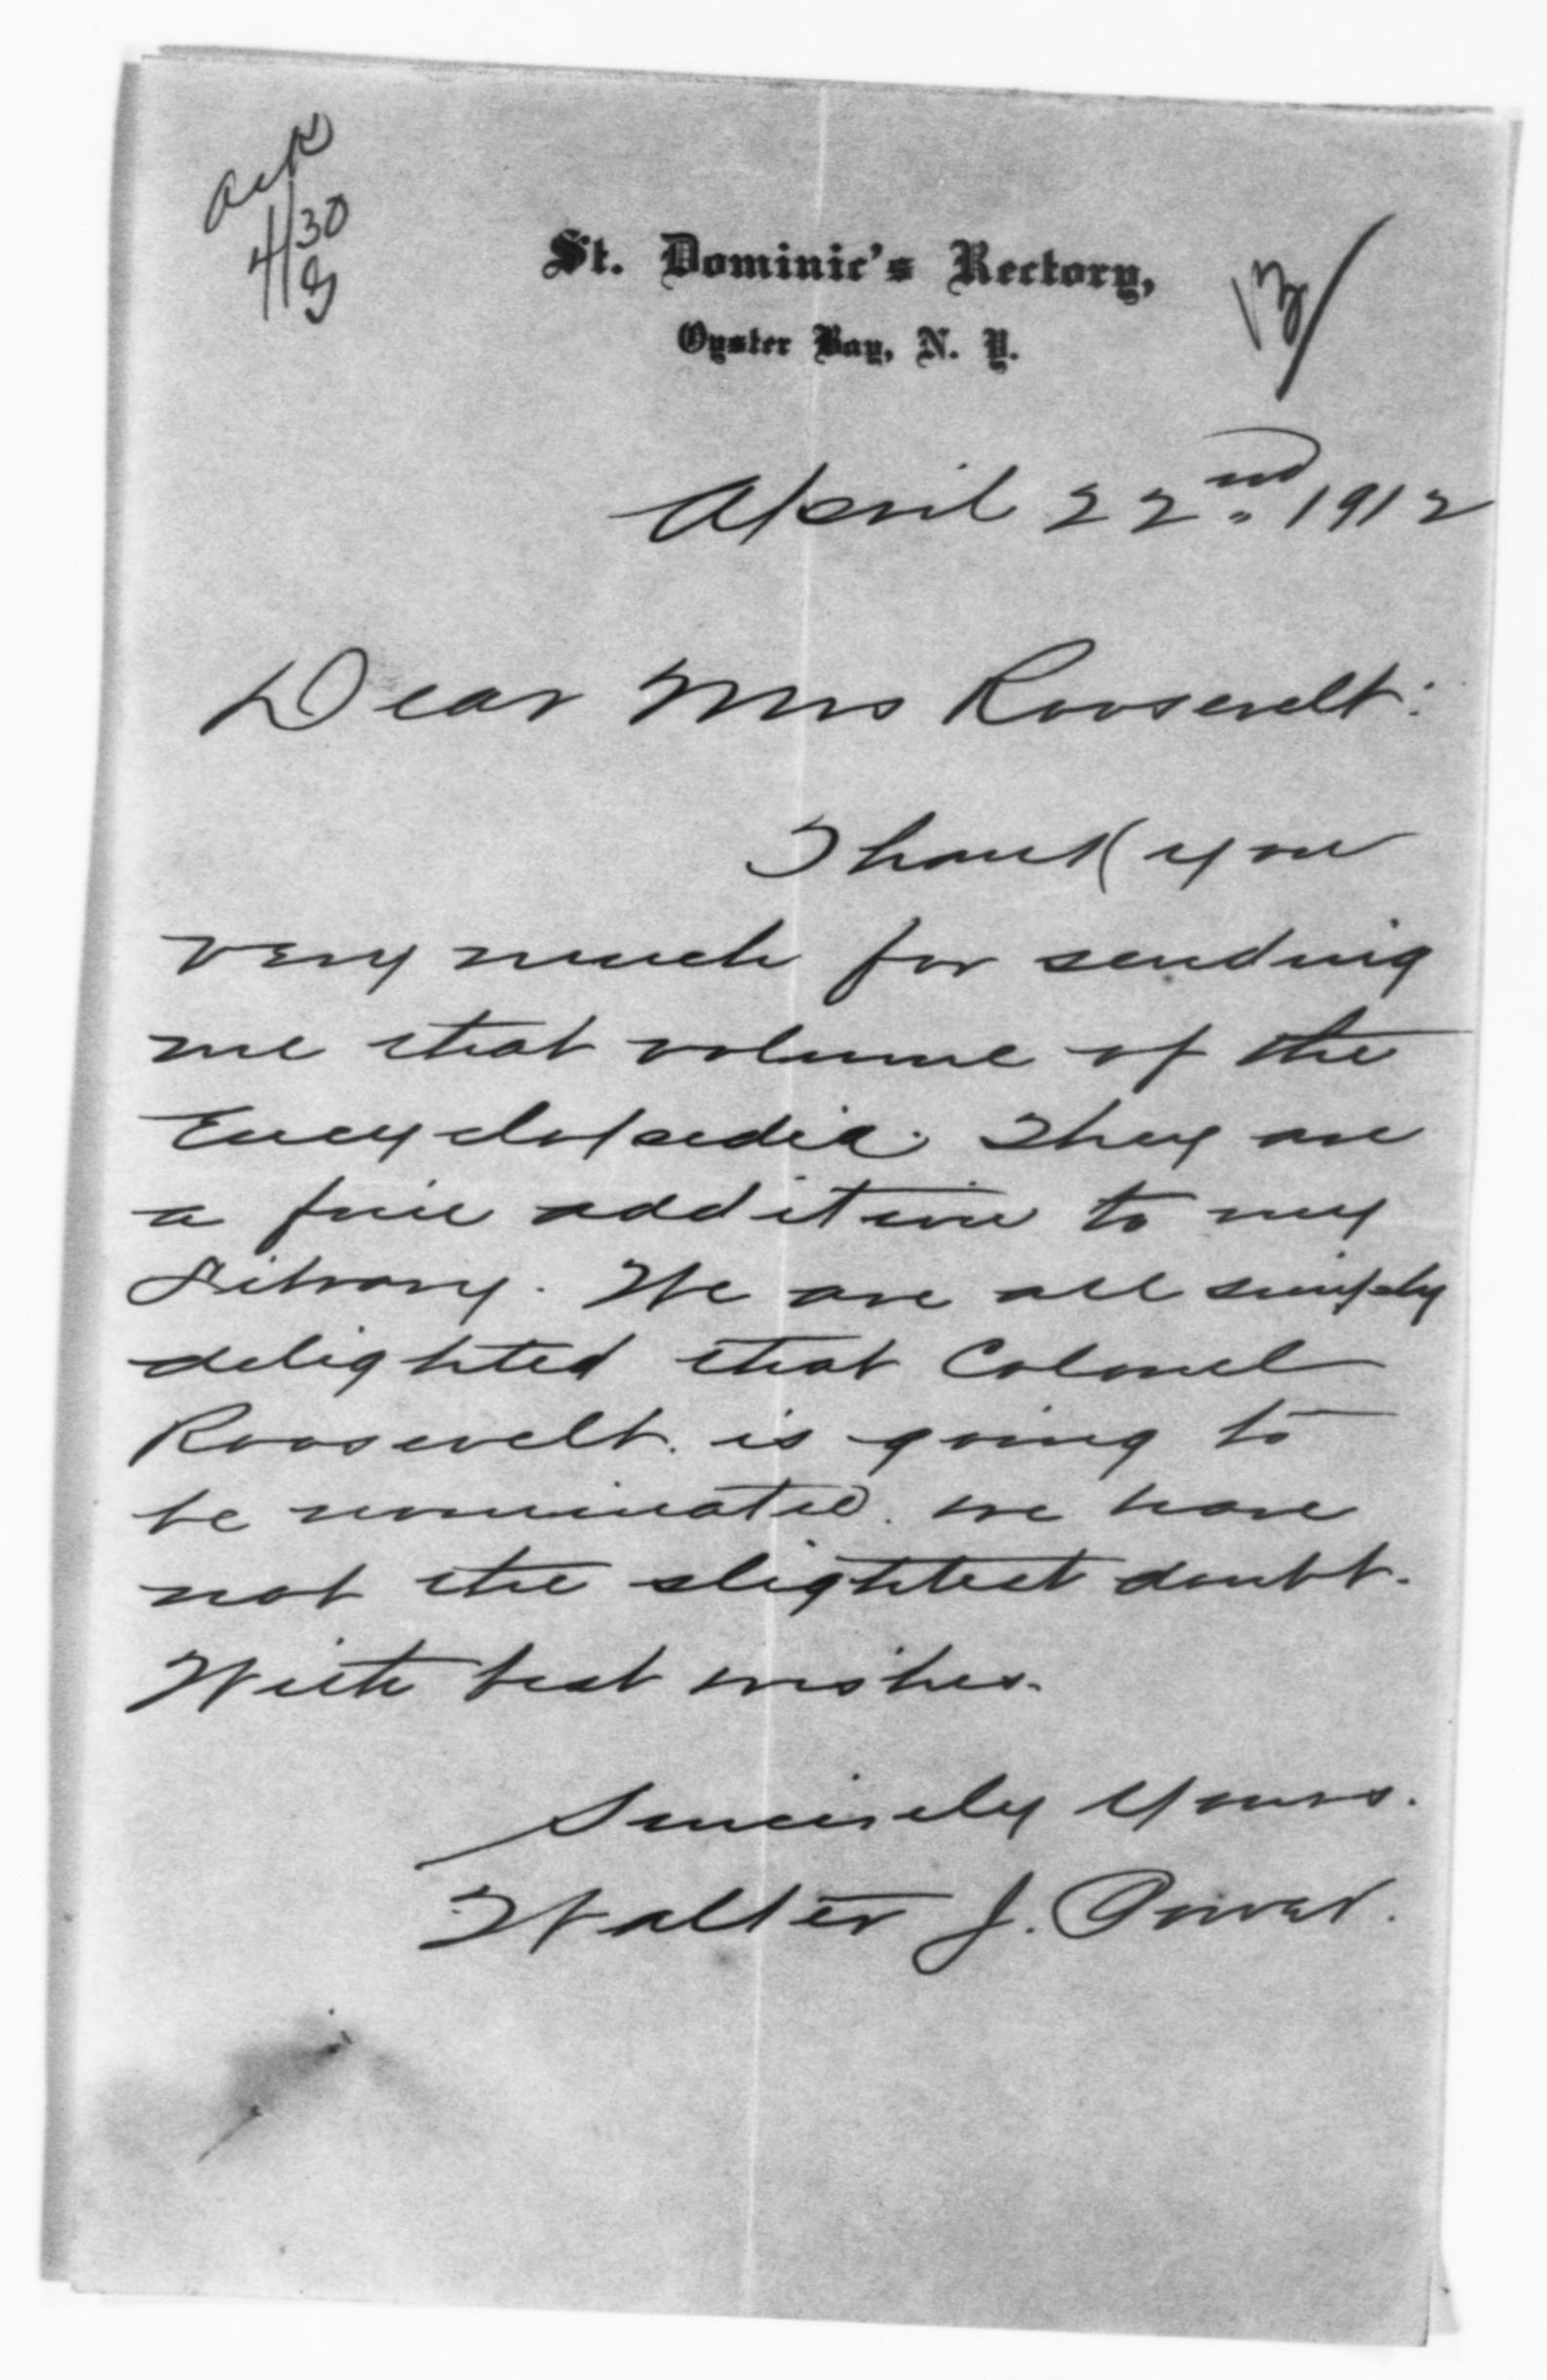 ack
4/30
St. Dominic's Rectory,
Oyster Bay, N. Y.
April 22nd. 1912
Dear Mrs Roosevelt:
Thank you
very much for sending
me that volume of the
Encyclopedia. They are
a fine addition to my
Library. We are all simply
delighted that Colonel
Roosevelt. is going to
be nominated. we have
not the slightest doubt.
With best wishes.
Sincerely Yours.
Walter J. Power.